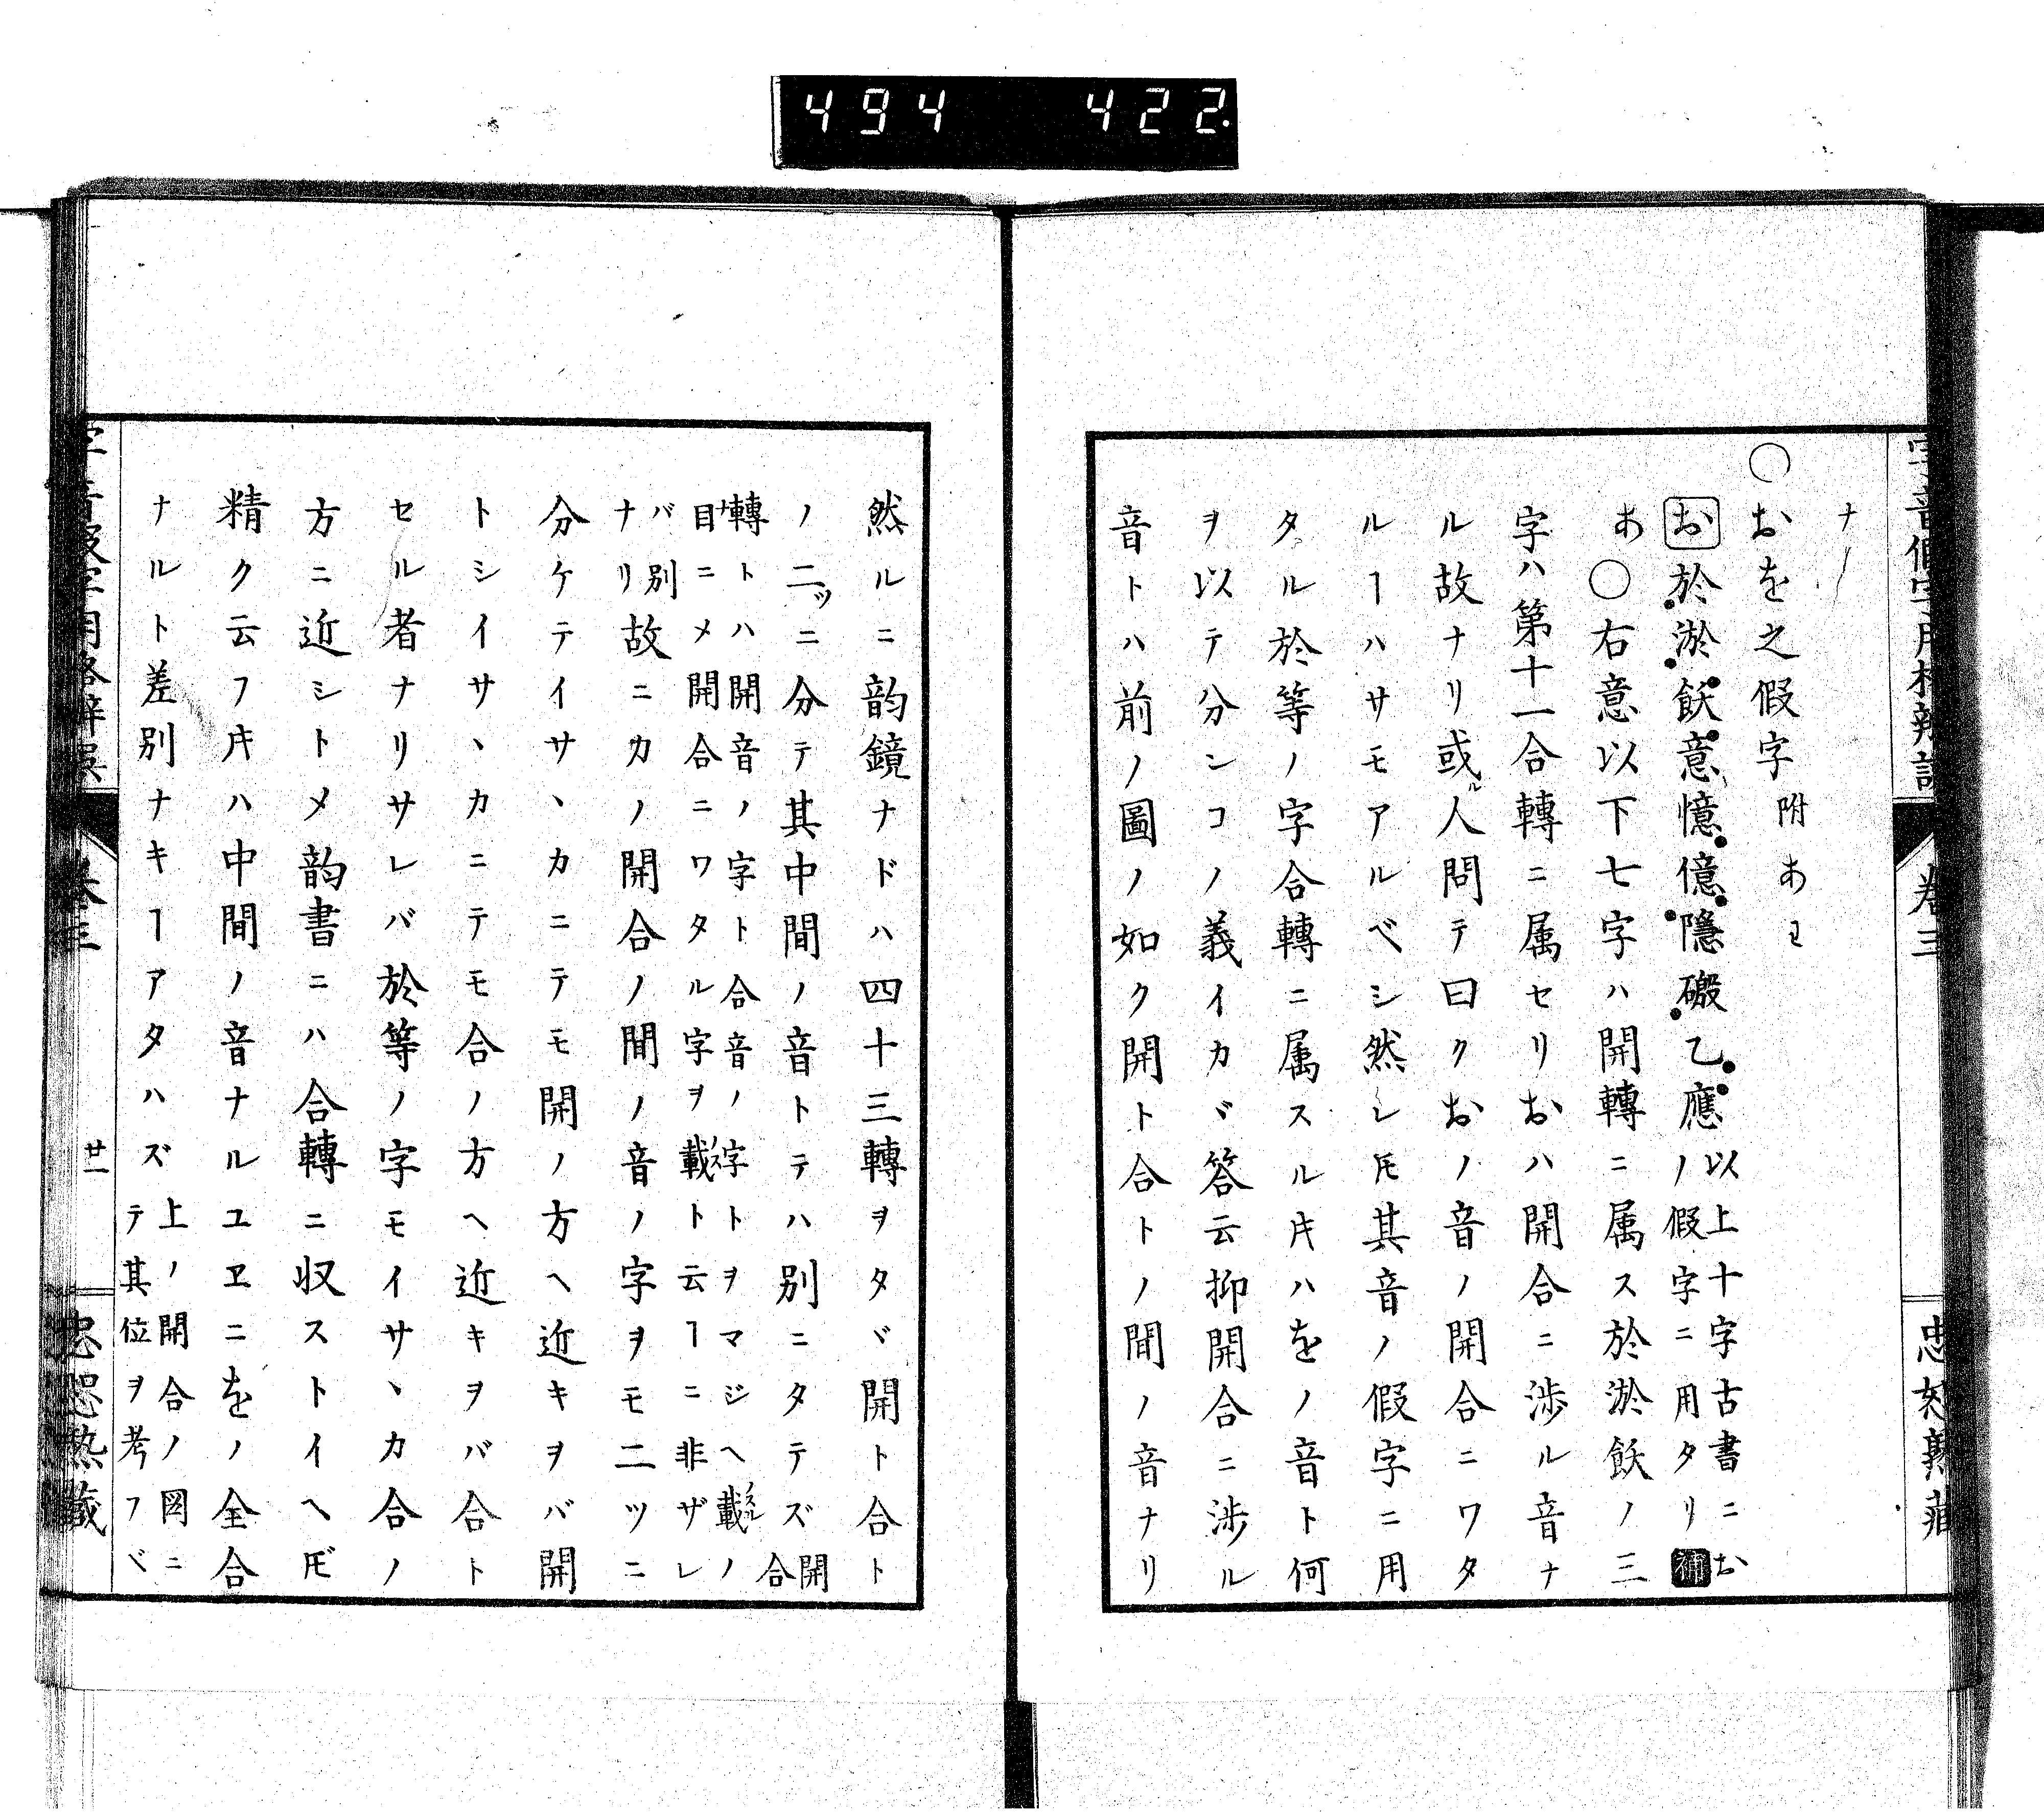 494 422.
字音假字用格辨誤 卷三 忠恕熟蔵
ナ
○おを之假字 附 あわ
お 於淤飫意憶億隱磤乙應 以上十字古書ニお
ノ假字ニ用タリ 補
あ○右意以下七字ハ開轉ニ属ス於淤飫ノ三
字ハ第十一合轉ニ属セリおハ開合ニ渉ル音ナ
ル故ナリ或ル人問テ曰クおノ音ノ開合ニワタ
ルヿハサモアルベシ然レ𪜈其音ノ假字ニ用
タル於等ノ字合轉ニ属スル𪜈ハをノ音ト何
ヲ以テ分ンコノ義イカヾ答云抑開合ニ渉ル
音トハ前ノ圖ノ如ク開ト合トノ間ノ音ナリ
然ルニ韵鏡ナドハ四十三轉ヲタヾ開ト合ト
ノ二ツニ分テ其中間ノ音トテハ別ニタテズ 開合
轉トハ開音ノ字ト合音ノ字トヲマジヘ載スルノ
目ニメ開合ニワタル字ヲ載ト云ヿニ非ザレ
バ別
ナリ故ニカノ開合ノ間ノ音ノ字ヲモ二ツニ
分ケテイサヽカニテモ開ノ方ヘ近キヲバ開
トシイサヽカニテモ合ノ方ヘ近キヲバ合ト
セル者ナリサレバ於等ノ字モイサヽカ合ノ
方ニ近シトメ韵書ニハ合轉ニ収ストイヘ𪜈
精ク云フ𪜈ハ中間ノ音ナルユヱニをノ全合
ナルト差別ナキヿアタハズ 上ノ開合ノ図ニ
テ其位ヲ考フベ
字音假字用格辨誤 卷三 廿一 忠恕熟蔵